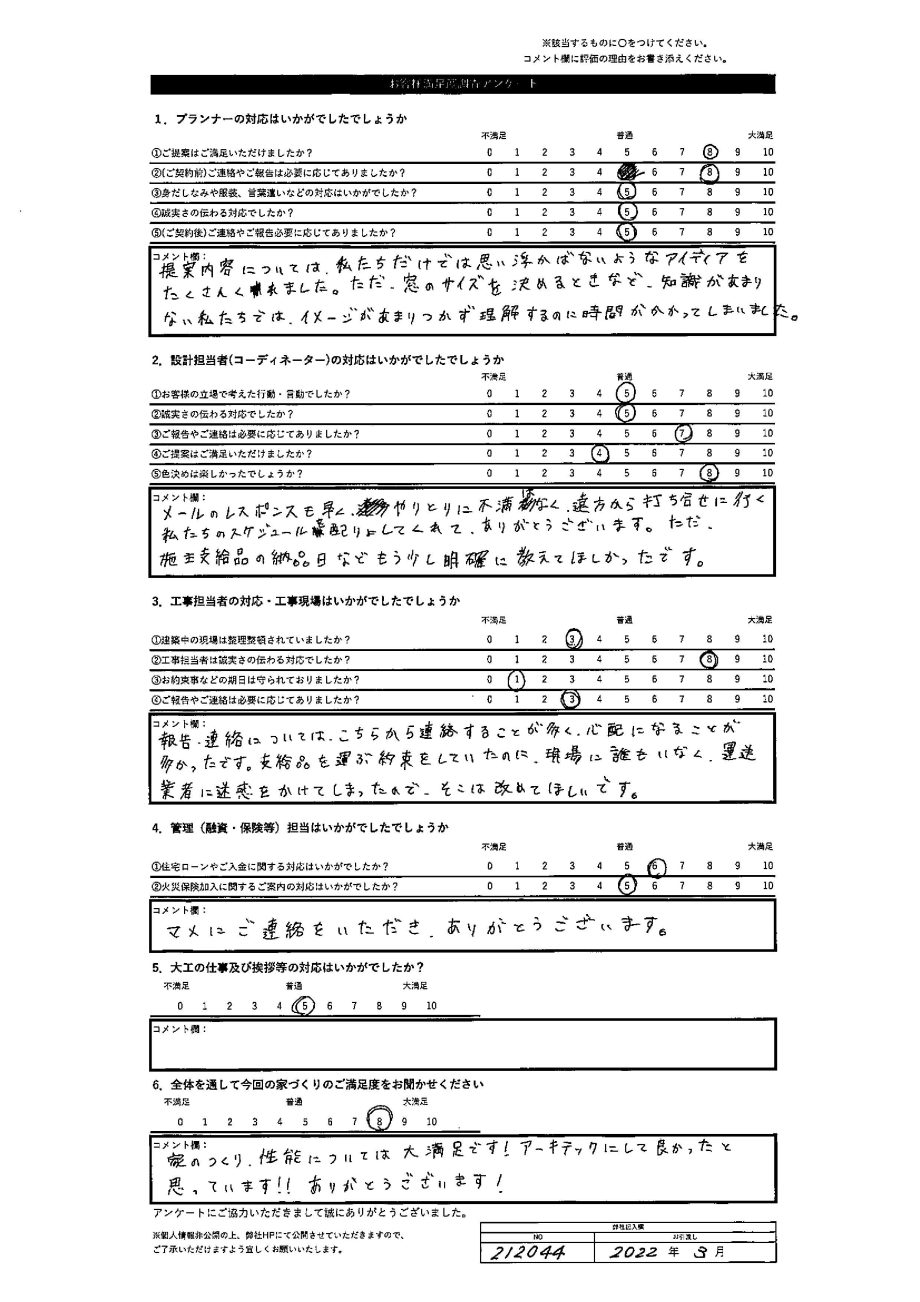 ※該当するものに〇をつけてください。
コメント欄に評価の理由をお書き添えください。
お客様満足度調査アンケート
1．プランナーの対応はいかがでしたでしょうか
不満足 普通 大満足
①ご提案はご満足いただけましたか？ 0 1 2 3 4 5 6 7 8 9 10
②(ご契約前)ご連絡やご報告は必要に応じてありましたか？ 0 1 2 3 4 6 7 8 9 10
③身だしなみや服装、言葉遣いなどの対応はいかがでしたか？ 0 1 2 3 4 5 6 7 8 9 10
④誠実さの伝わる対応でしたか？ 0 1 2 3 4 5 6 7 8 9 10
⑤(ご契約後)ご連絡やご報告必要に応じてありましたか？ 0 1 2 3 4 5 6 7 8 9 10
コメント欄：
提案内容については、私たちだけでは思い浮かばないようなアイディアを
たくさんくれました。ただ、窓のサイズを決めるときなど、知識があまり
ない私たちでは、イメージがあまりつかず理解するのに時間がかかってしまいました。
2．設計担当者(コーディネーター)の対応はいかがでしたでしょうか
不満足 普通 大満足
①お客様の立場で考えた行動・言動でしたか？ 0 1 2 3 4 5 6 7 8 9 10
②誠実さの伝わる対応でしたか？ 0 1 2 3 4 5 6 7 8 9 10
③ご報告やご連絡は必要に応じてありましたか？ 0 1 2 3 4 5 6 7 8 9 10
④ご提案はご満足いただけましたか？ 0 1 2 3 4 5 6 7 8 9 10
⑤色決めは楽しかったでしょうか？ 0 1 2 3 4 5 6 7 8 9 10
コメント欄：
メールのレスポンスも早く、やりとりに不満はなく、遠方から打ち合せに行く
私たちのスケジュール配りょしてくれて、ありがとうございます。ただ、
施主支給品の納品日などもう少し明確に教えてほしかったです。
3．工事担当者の対応・工事現場はいかがでしたでしょうか
不満足 普通 大満足
①建築中の現場は整理整頓されていましたか？ 0 1 2 3 4 5 6 7 8 9 10
②工事担当者は誠実さの伝わる対応でしたか？ 0 1 2 3 4 5 6 7 8 9 10
③お約束事などの期日は守られておりましたか？ 0 1 2 3 4 5 6 7 8 9 10
④ご報告やご連絡は必要に応じてありましたか？ 0 1 2 3 4 5 6 7 8 9 10
コメント欄：
報告・連絡については、こちらから連絡することが多く、心配になることが
多かったです。支給品を運ぶ約束をしていたのに、現場に誰もいなく、運送
業者に迷惑をかけてしまったので、そこは改めてほしいです。
4．管理（融資・保険等）担当はいかがでしたでしょうか
不満足 普通 大満足
①住宅ローンやご入金に関する対応はいかがでしたか？ 0 1 2 3 4 5 6 7 8 9 10
②火災保険加入に関するご案内の対応はいかがでしたか？ 0 1 2 3 4 5 6 7 8 9 10
コメント欄：
マメにご連絡をいただき、ありがとうございます。
5．大工の仕事及び挨拶等の対応はいかがでしたか？
不満足 普通 大満足
0 1 2 3 4 5 6 7 8 9 10
コメント欄：
6．全体を通して今回の家づくりのご満足度をお聞かせください
不満足 普通 大満足
0 1 2 3 4 5 6 7 8 9 10
コメント欄：
家のつくり、性能については大満足です！アーキテックにして良かったと
思っています!!ありがとうございます！
アンケートにご協力いただきまして誠にありがとうございました。
※個人情報非公開の上、弊社HPにて公開させていただきますので、
ご了承いただけますよう宜しくお願いいたします。
弊社記入欄
NO お引渡し
212044 2022 年 3 月